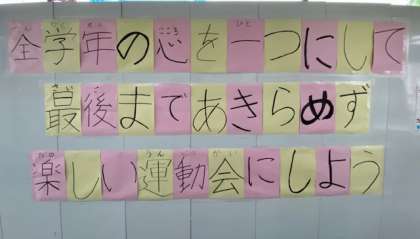 全学年の心を一つにして
最後まであきらめず
楽しい運動会にしよう